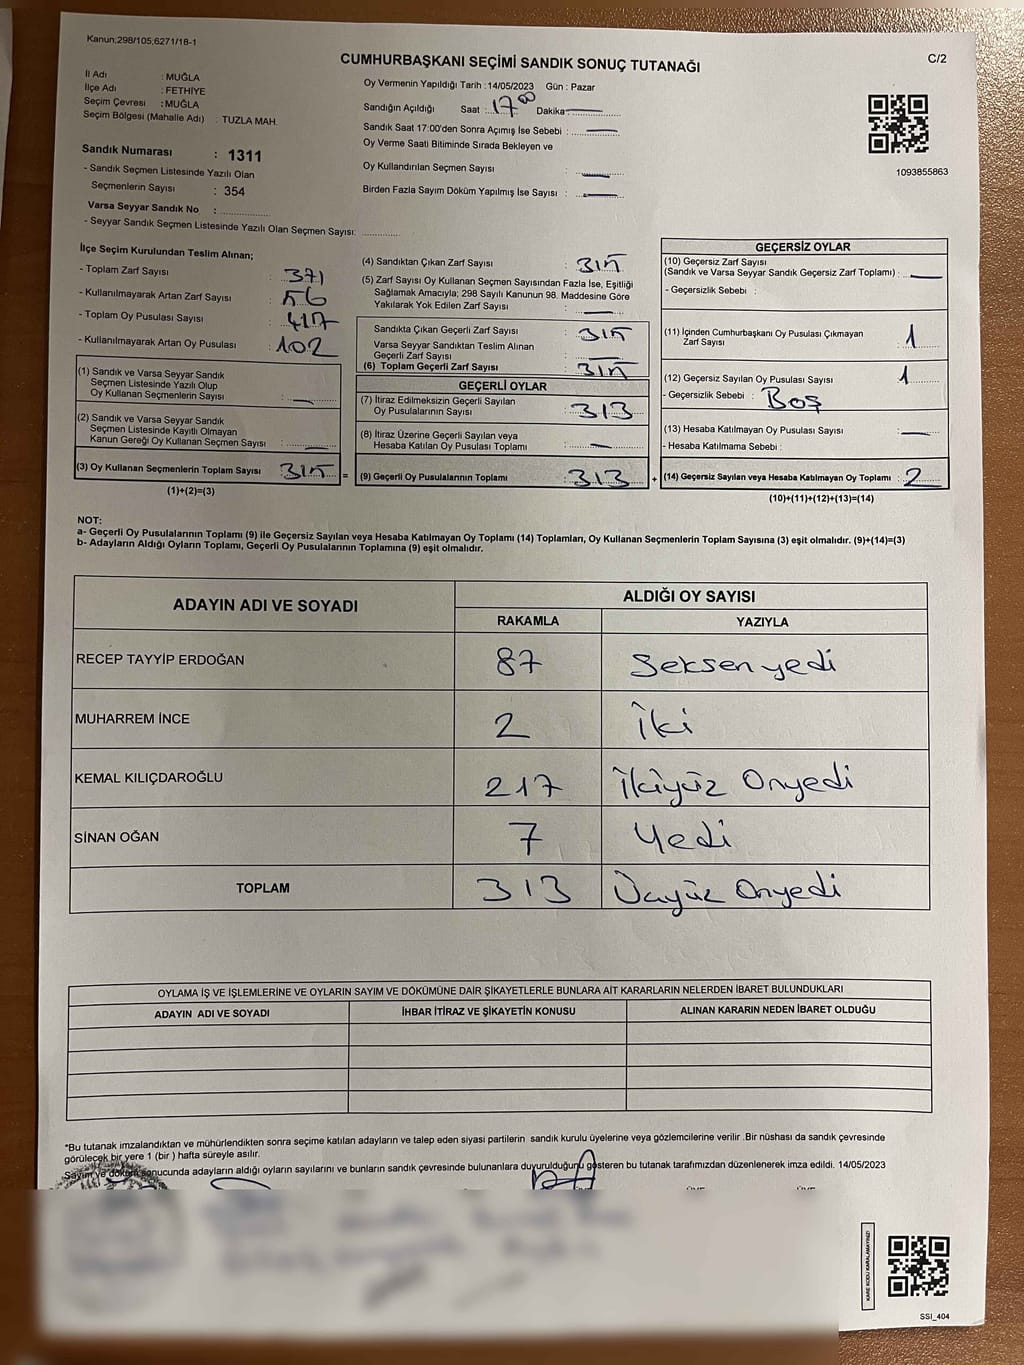 Kanun;298/105;6271/18-1
C/2
CUMHURBAŞKANI SEÇİMİ SANDIK SONUÇ TUTANAĞI
İl Adı : MUĞLA
İlçe Adı : FETHİYE
Seçim Çevresi : MUĞLA
Seçim Bölgesi (Mahalle Adı) : TUZLA MAH.
Sandık Numarası : 1311
- Sandık Seçmen Listesinde Yazılı Olan
Seçmenlerin Sayısı : 354
Varsa Seyyar Sandık No :
- Seyyar Sandık Seçmen Listesinde Yazılı Olan Seçmen Sayısı:
Oy Vermenin Yapıldığı Tarih : 14/05/2023 Gün : Pazar
Sandığın Açıldığı Saat : 17 00 Dakika
Sandık Saat 17:00'den Sonra Açımış İse Sebebi :
Oy Verme Saati Bitiminde Sırada Bekleyen ve
Oy Kullandırılan Seçmen Sayısı :
Birden Fazla Sayım Döküm Yapılmış İse Sayısı :
1093855863
İlçe Seçim Kurulundan Teslim Alınan;
- Toplam Zarf Sayısı : 371
- Kullanılmayarak Artan Zarf Sayısı : 56
- Toplam Oy Pusulası Sayısı : 417
- Kullanılmayarak Artan Oy Pusulası : 102
(1) Sandık ve Varsa Seyyar Sandık
Seçmen Listesinde Yazılı Olup
Oy Kullanan Seçmenlerin Sayısı :
(2) Sandık ve Varsa Seyyar Sandık
Seçmen Listesinde Kayıtlı Olmayan
Kanun Gereği Oy Kullanan Seçmen Sayısı :
(3) Oy Kullanan Seçmenlerin Toplam Sayısı : 315 =
(1)+(2)=(3)
(4) Sandıktan Çıkan Zarf Sayısı : 315
(5) Zarf Sayısı Oy Kullanan Seçmen Sayısından Fazla İse, Eşitliği
Sağlamak Amacıyla; 298 Sayılı Kanunun 98. Maddesine Göre
Yakılarak Yok Edilen Zarf Sayısı :
Sandıkta Çıkan Geçerli Zarf Sayısı : 315
Varsa Seyyar Sandıktan Teslim Alınan
Geçerli Zarf Sayısı :
(6) Toplam Geçerli Zarf Sayısı : 315
GEÇERLİ OYLAR
(7) İtiraz Edilmeksizin Geçerli Sayılan
Oy Pusulalarının Sayısı : 313
(8) İtiraz Üzerine Geçerli Sayılan veya
Hesaba Katılan Oy Pusulası Toplamı :
(9) Geçerli Oy Pusulalarının Toplamı : 313 +
GEÇERSİZ OYLAR
(10) Geçersiz Zarf Sayısı
(Sandık ve Varsa Seyyar Sandık Geçersiz Zarf Toplamı) :
- Geçersizlik Sebebi :
(11) İçinden Cumhurbaşkanı Oy Pusulası Çıkmayan
Zarf Sayısı : 1
(12) Geçersiz Sayılan Oy Pusulası Sayısı : 1
- Geçersizlik Sebebi : Boş
(13) Hesaba Katılmayan Oy Pusulası Sayısı :
- Hesaba Katılmama Sebebi :
(14) Geçersiz Sayılan veya Hesaba Katılmayan Oy Toplamı : 2
(10)+(11)+(12)+(13)=(14)
NOT:
a- Geçerli Oy Pusulalarının Toplamı (9) ile Geçersiz Sayılan veya Hesaba Katılmayan Oy Toplamı (14) Toplamları, Oy Kullanan Seçmenlerin Toplam Sayısına (3) eşit olmalıdır. (9)+(14)=(3)
b- Adayların Aldığı Oyların Toplamı, Geçerli Oy Pusulalarının Toplamına (9) eşit olmalıdır.
ADAYIN ADI VE SOYADI ALDIĞI OY SAYISI
RAKAMLA YAZIYLA
RECEP TAYYİP ERDOĞAN 87 Seksen yedi
MUHARREM İNCE 2 İki
KEMAL KILIÇDAROĞLU 217 İkiyüz Onyedi
SİNAN OĞAN 7 Yedi
TOPLAM 313 Üçyüz Onyedi
OYLAMA İŞ VE İŞLEMLERİNE VE OYLARIN SAYIM VE DÖKÜMÜNE DAİR ŞİKAYETLERLE BUNLARA AİT KARARLARIN NELERDEN İBARET BULUNDUKLARI
ADAYIN ADI VE SOYADI İHBAR İTİRAZ VE ŞİKAYETİN KONUSU ALINAN KARARIN NEDEN İBARET OLDUĞU
*Bu tutanak imzalandıktan ve mühürlendikten sonra seçime katılan adayların ve talep eden siyasi partilerin sandık kurulu üyelerine veya gözlemcilerine verilir .Bir nüshası da sandık çevresinde
görülecek bir yere 1 (bir ) hafta süreyle asılır.
Sayım ve döküm sonucunda adayların aldığı oyların sayılarını ve bunların sandık çevresinde bulunanlara duyurulduğunu gösteren bu tutanak tarafımızdan düzenlenerek imza edildi. 14/05/2023
KARE KODU KARALAMAYINIZ!
SSI_404